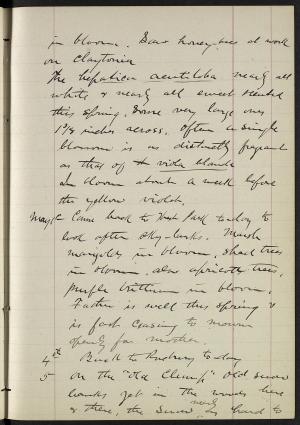 in bloom. Saw honey-bee at work
on Claytonia
The hepatica acutiloba nearly all
white & nearly all sweet scented
this spring. Some very large ones
1 1/8 inches across. Often a single
blossom is as distinctly fragrant
as that of viola blanda
In bloom about a week before
the yellow violet.
May 1st Came back to West Park to-day to
look after sky-larks. Marsh
marigolds in bloom, shad trees
in bloom, also apricot trees,
purple trillium in bloom.
Father is well this spring &
is fast ceasing to mourn
openly for mother.
4th Back to Roxbury to-day
5 On the "Old Clump" old snow
banks yet in the woods here
& there, the snow nearly as hard to